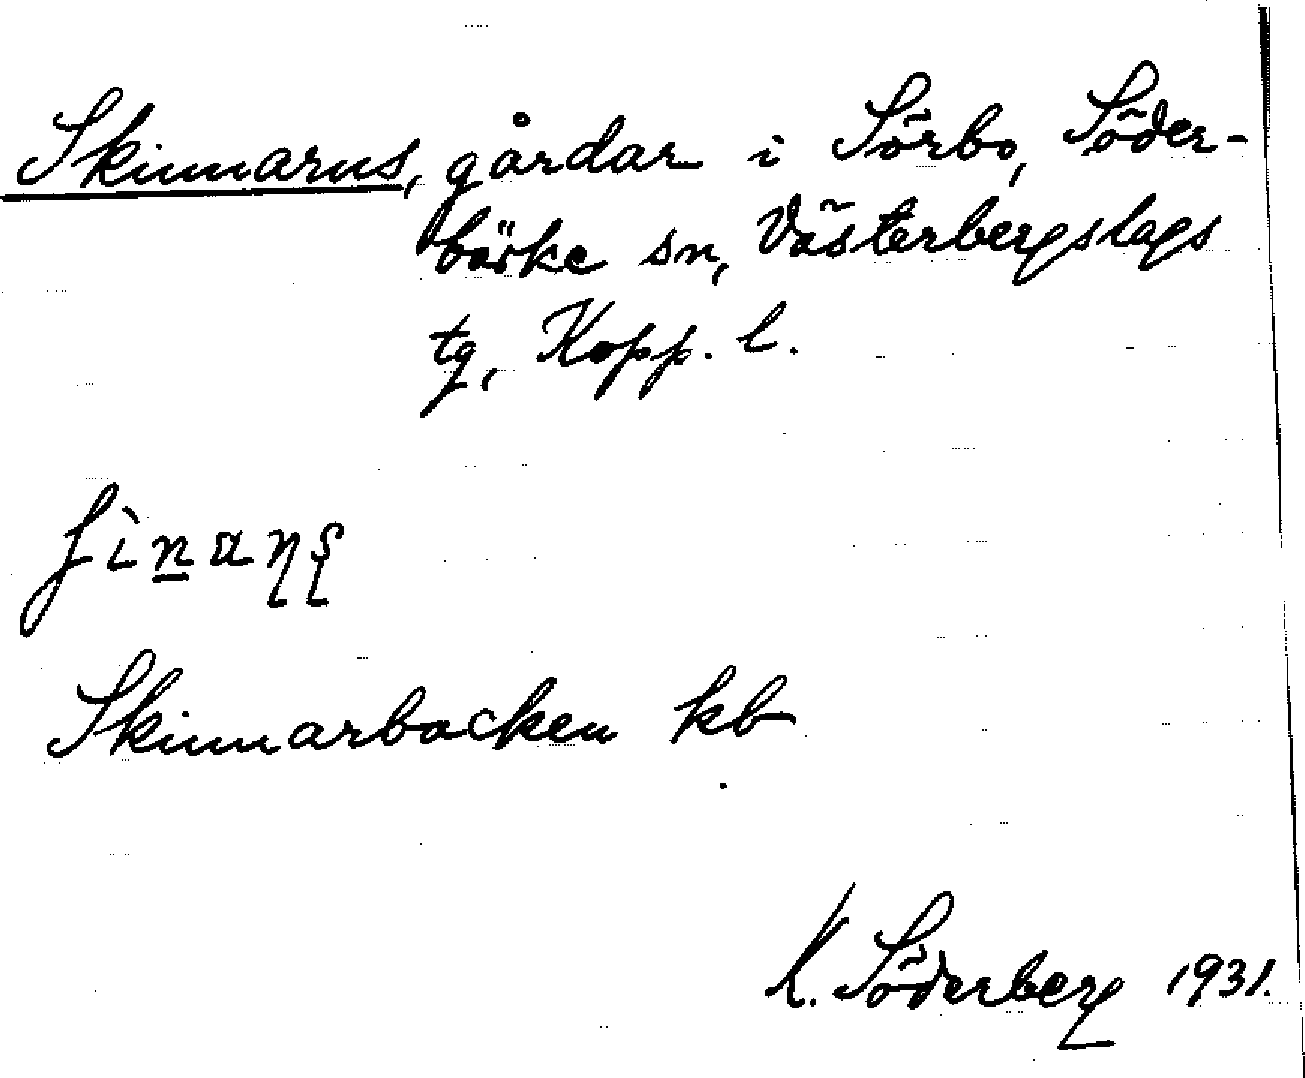 Skinnarns, gårdar i Sörbo, Söder-
bärke sn, Västerbergslags
tg, Kopp. l.
Skinnarbacken kb
K. Söderberg 1931.